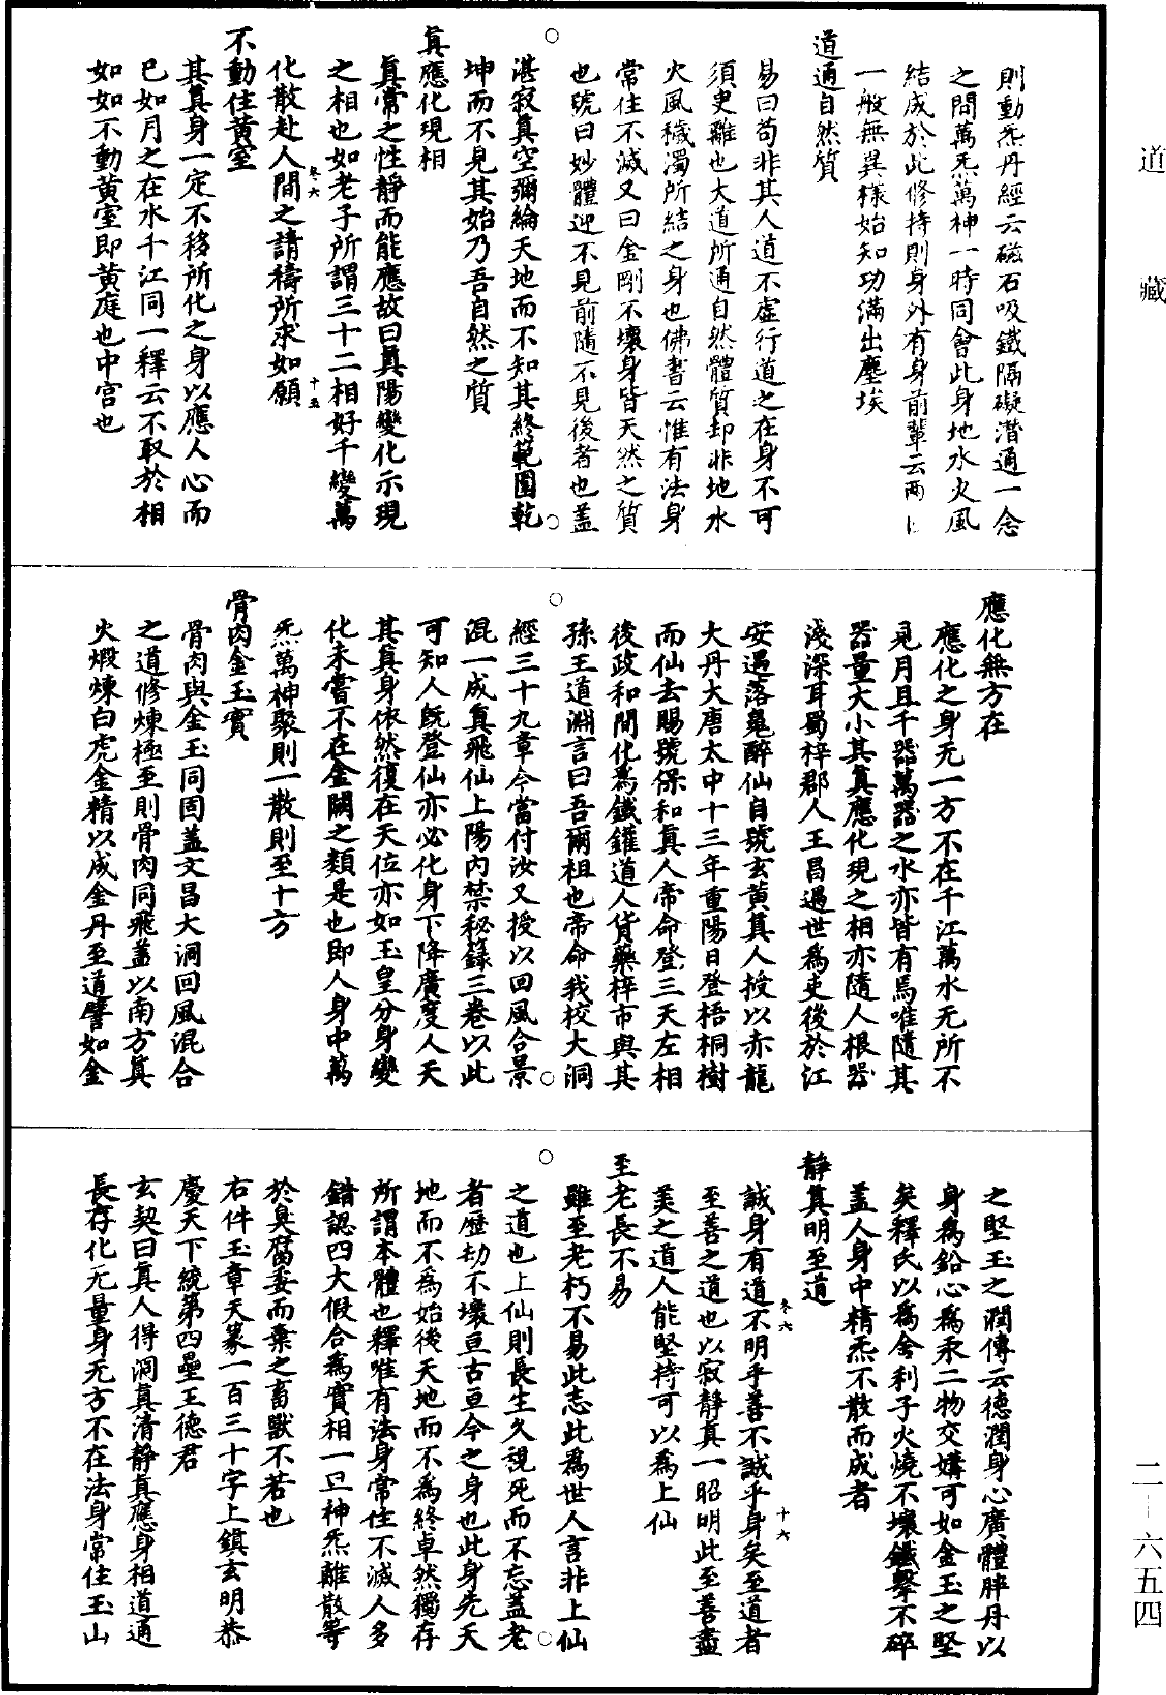 道藏
則動炁丹經云磁石吸鐵隔礙潛通一念
之間萬炁萬神一時同會此身地水火風
結成於此修持則身外有身前輩云兩
一般無異樣始知功滿出塵埃
道通自然質
易曰苟非其人道不虛行道之在身不可
須臾離也大道所通自然體質却非地水
火風穢濁所結之身也佛書云惟有法身
常住不滅又曰金剛不壞身皆天然之質
也號曰妙體迎不見前隨不見後者也蓋
湛寂真空彌綸天地而不知其終範圍乾
坤而不見其始乃吾自然之質
真應化現相
真常之性靜而能應故曰真陽變化示現
之相也如老子所謂三十二相好千變萬
卷六 十五
化散赴人間之請禱所求如願
不動住黃室
其真身一定不移所化之身以應人心而
已如月之在水千江同一釋云不取於相
如如不動黃室即黃庭也中宫也
應化無方在
應化之身无一方不在千江萬水无所不
見月且千器萬器之水亦皆有焉唯隨其
器量大小其真應化現之相亦隨人根器
淺深耳蜀梓郡人王昌遇世為吏後於江
安遇落魄醉仙自號玄黃真人授以赤龍
大丹大唐太中十三年重陽日登梧桐樹
而仙去賜號保和真人帝命登三天左相
後政和間化為鐵鑵道人貨藥梓市與其
孫王道淵言曰吾爾祖也帝命我校大洞
經三十九章今當付汝又授以回風合景
混一成真飛仙上陽內禁秘籙三卷以此
可知人既登仙亦必化身下降廣度人天
其真身依然復在天位亦如玉皇分身變
化未嘗不在金闕之類是也即人身中萬
炁萬神聚則一散則至十方
骨肉金玉實
骨肉與金玉同固蓋文昌大洞回風混合
之道修煉極至則骨肉同飛蓋以南方真
火煅煉白虎金精以成金丹至道譬如金
之堅玉之潤傳云德潤身心廣體胖丹以
身為鉛心為汞二物交媾可如金玉之堅
矣釋氏以為舍利子火燒不壞鐵擊不碎
蓋人身中精炁不散而成者
靜真明至道
卷六 十六
誠身有道不明乎善不誠乎身矣至道者
至善之道也以寂靜真一昭明此至善盡
美之道人能堅持可以為上仙
至老長不易
雖至老朽不易此志此為世人言非上仙
之道也上仙則長生久視死而不忘蓋老
者歷劫不壞亘古亘今之身也此身先天
地而不為始後天地而不為終卓然獨存
所謂本體也釋唯有法身常住不滅人多
錯認四大假合為實相一旦神炁離散等
於臭腐委而棄之畜獸不若也
右件玉章天篆一百三十字上鎮玄明恭
慶天下統第四壘王德君
玄契曰真人得洞真清靜真應身相道通
長存化无量身无方不在法身常住玉山
二—六五四